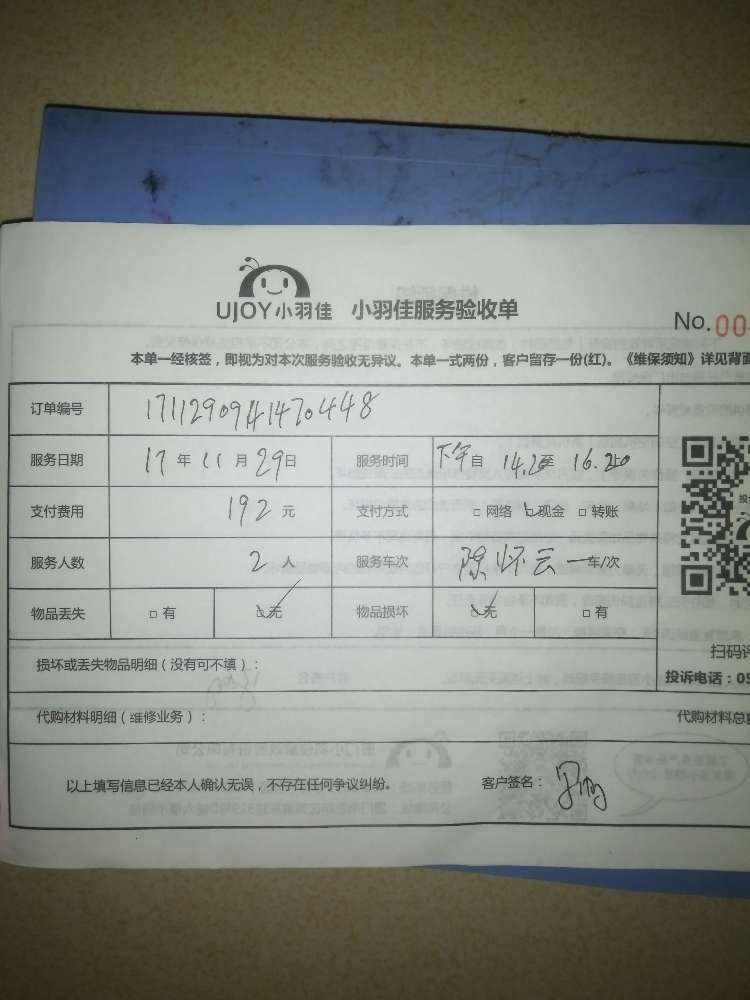 UJOY小羽佳 小羽佳服务验收单
No.00
本单一经核签，即视为对本次服务验收无异议。本单一式两份，客户留存一份(红)。《维保须知》详见背面
订单编号 171129094147​0448
服务日期 17年11月29日 服务时间 下午自 14.20至 16.20
支付费用 192元 支付方式 □ 网络 ☑现金 □ 转账
服务人数 2人 服务车次 陈怀云一车/次
物品丢失 □ 有 ☑无 物品损坏 ☑无 □ 有
扫码评
损坏或丢失物品明细（没有可不填）：
投诉电话：05
代购材料明细（维修业务）： 代购材料总额
以上填写信息已经本人确认无误，不存在任何争议纠纷。 客户签名：